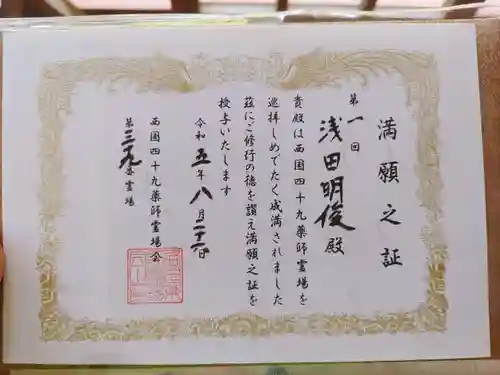 満願之証
第一回
浅田明俊殿
貴殿は西国四十九薬師霊場を
巡拝しめでたく成満されました
茲にご修行の徳を讃え満願之証を
授与いたします
令和五年八月二十二日
西国四十九薬師霊場会
第三九番霊場